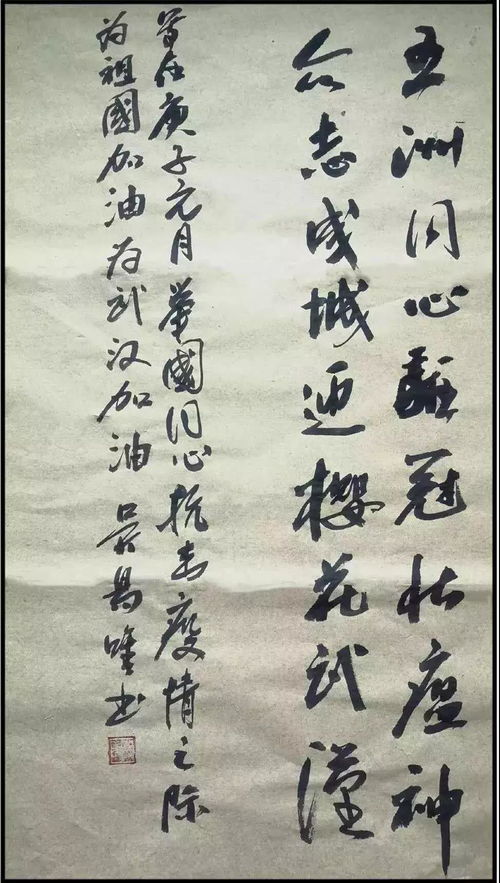 五洲同心冠状瘟神
众志成城迎櫻花武漢
在庚子元月举國同心抗击疫情之际
为祖國加油为武汉加油 书